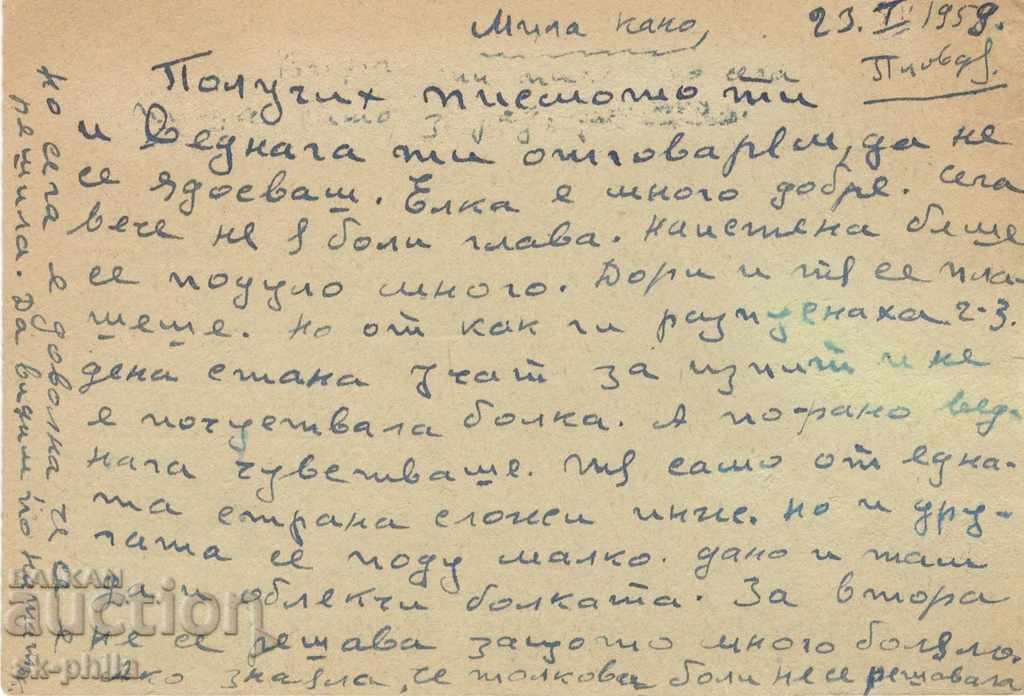 23. I 1959.
Пловдя.
Мила како,
Получих писмото ти
и веднага ти отговарям, да не
се ядосваш. Елка е много добре. Сега
вече не я боли глава. Наистена беше
се подуло много. Дори и тя се пла-
шеше. Но от как ги 2-3.
дена стана учат за изпит и не
е почувствала болка. А по-рано вед-
нага чувстваше. Тя само от една-
та страна сложи инж. но и дру-
гата се поду малко. дано и там
да и облекчи болката. За втора
не се решава защото много боляло.
Ако знаяла, че толкова боли не се решавала
но сега е доволна че се е
решила. Да видим по нататъ
БАЛКАН
auction
sk-philn